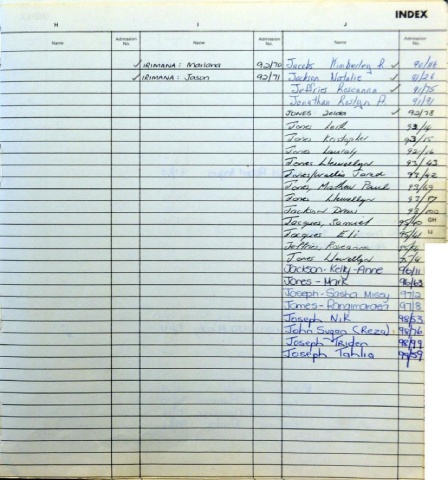 INDEX
H I J
Name Admission No. Name Admission No. Name Admission No.
✓ IRIMANA: Mariana 92/70 Jacobs Kimberley R ✓ 90/
✓ IRIMANA: Jason 92/71 Jackson Natalie ✓ 91/26
Jeffries Roseanna ✓ 91/75
Jonathan Roslyn A. 91/91
JONES ✓ 92/78
Jones
Jones Kristopher 93/15
Jones 92/
Jones Llewellyn 93/43
Jones Jared 93/42
Jones, Mathew Paul 93/69
Jones Llewellyn 93/17
Jackson Drew
Jacques, Samuel GH
Jacques Eli IJ
Jeffries, Roseanna
Jones Llewellyn
Jackson-Kelly-Anne 96/11
Jones - Mark 96/63
Joseph-Sasha Missy 97/2
James-Rangimarae 97/3
Joseph Nik 98/53
John Sugan (Reza) 98/76
Joseph Triden 98/99
Joseph Tahlia 99/59